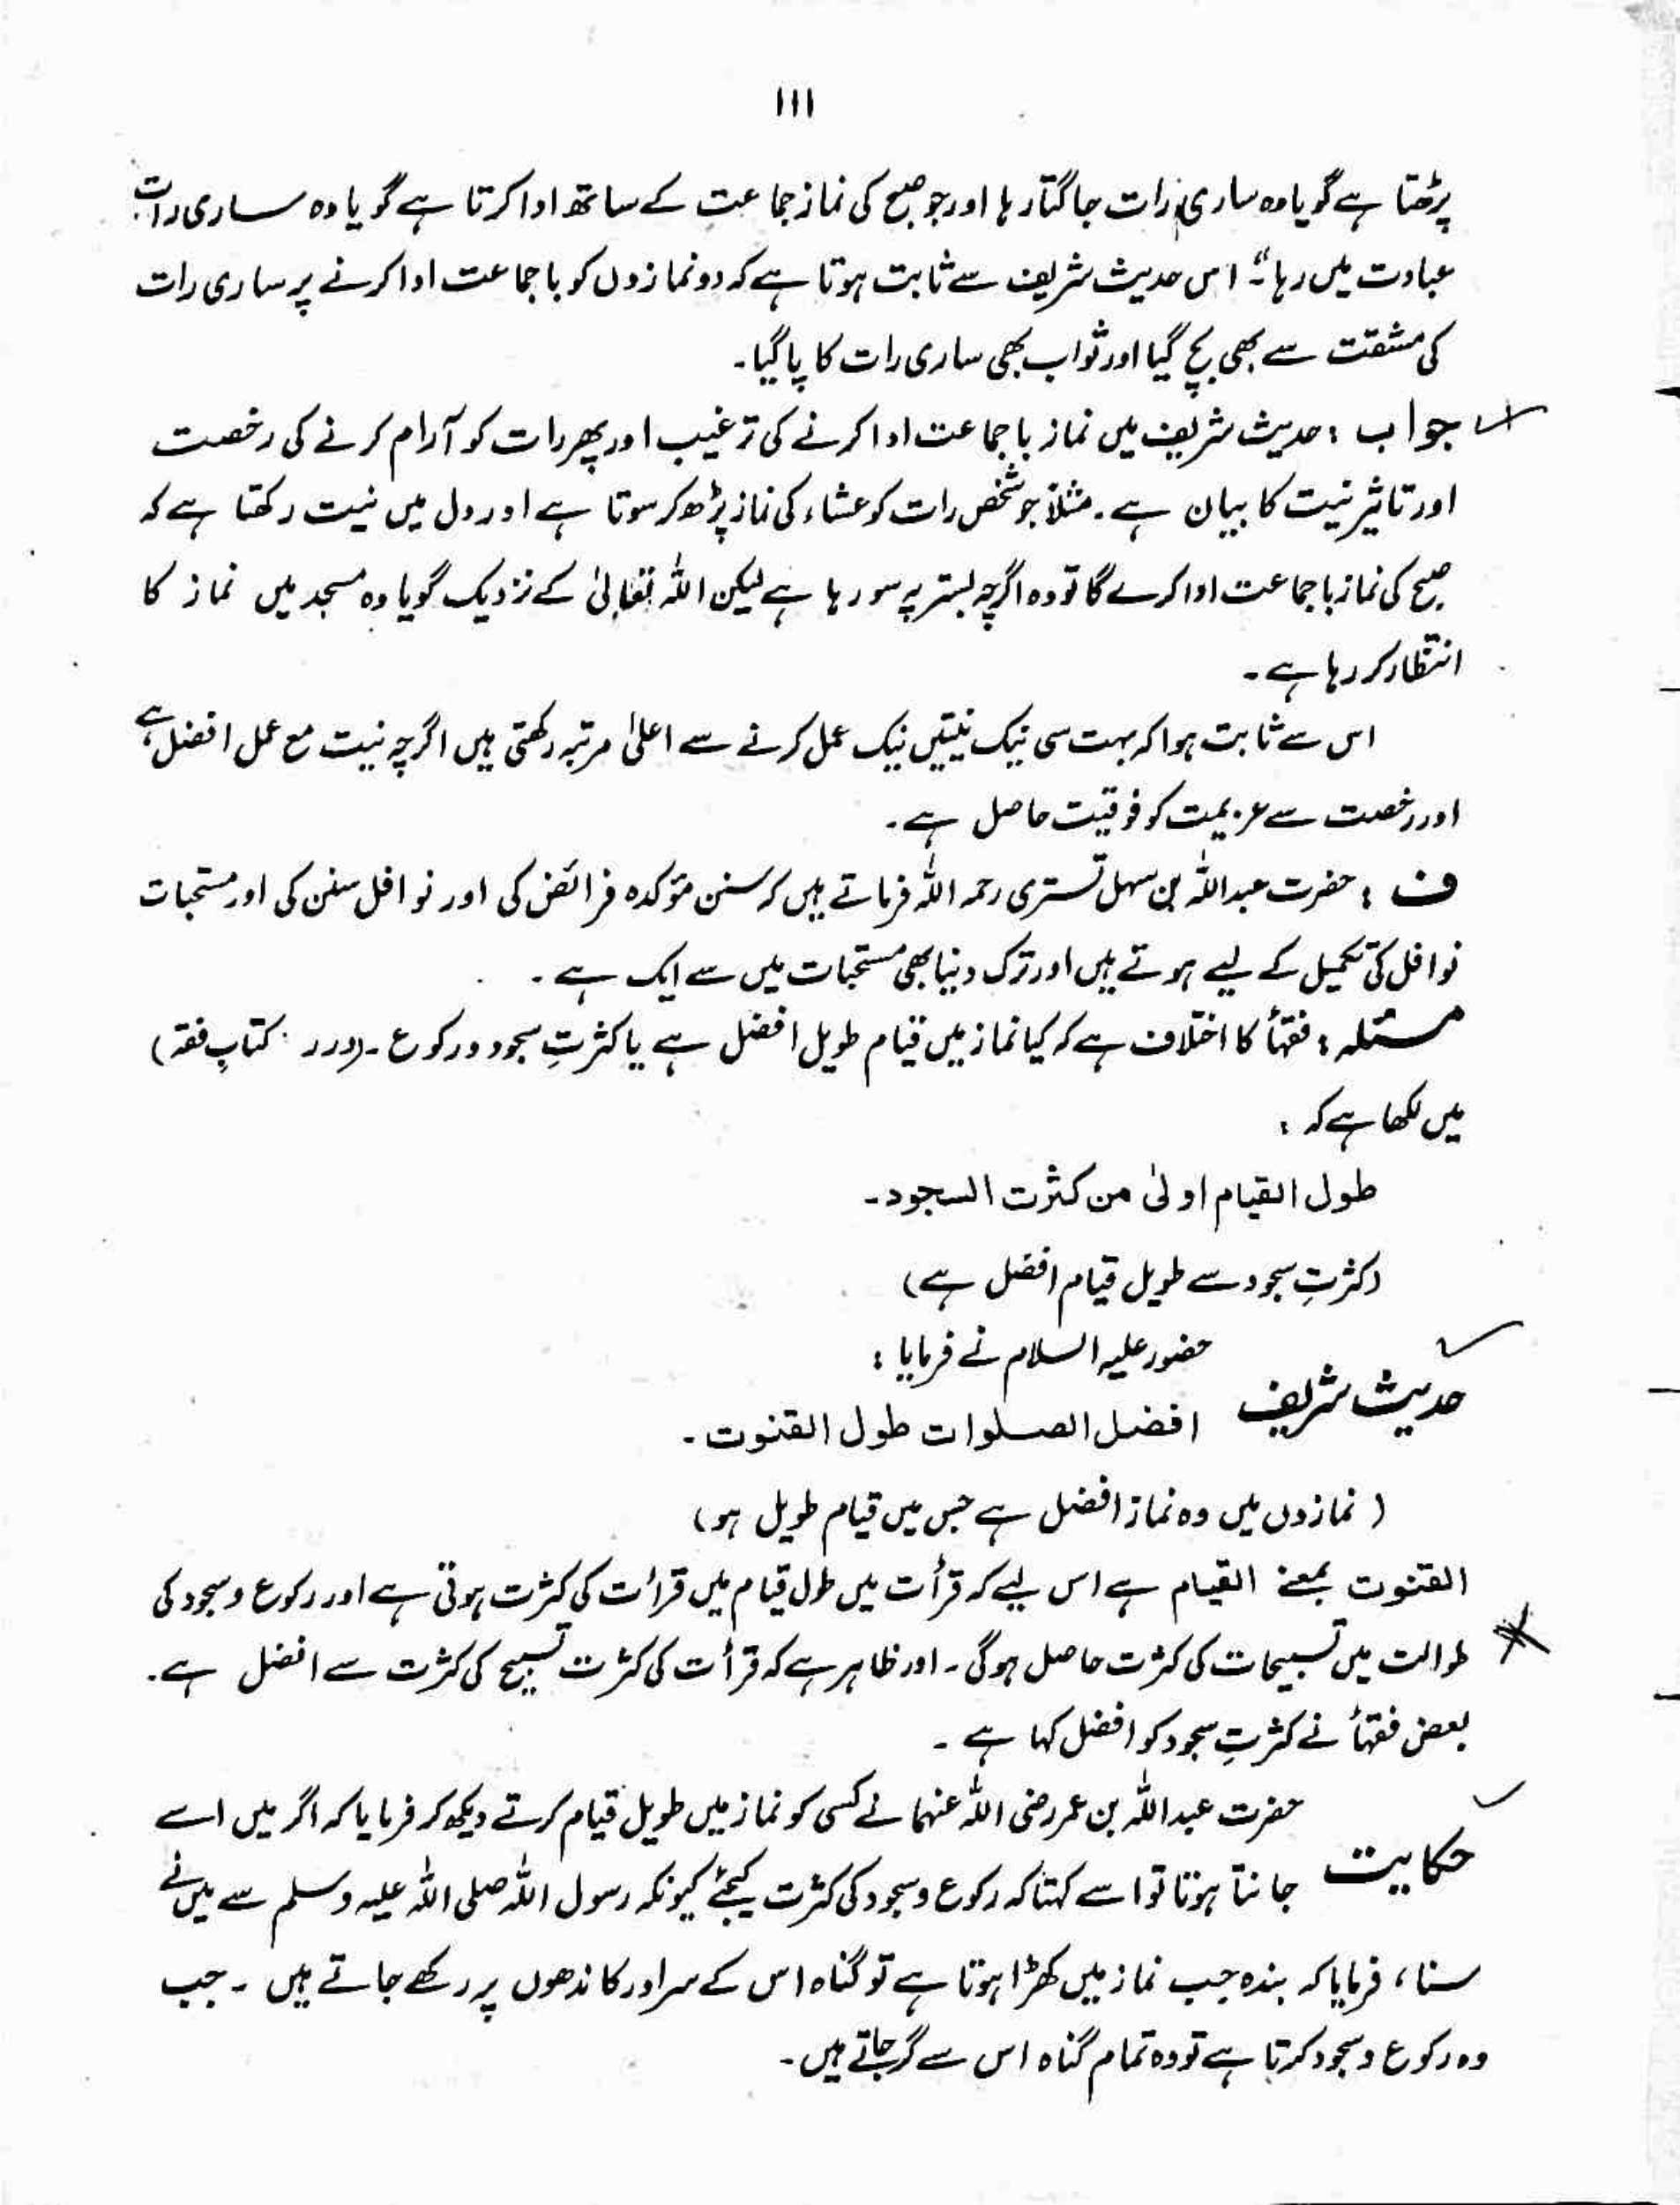 ۱۱۱
پڑھتا ہے گویا وہ ساری رات جاگتا رہا اور جو صبح کی نماز جماعت کے ساتھ ادا کرتا ہے گویا وہ ساری رات
عبادت میں رہا“۔ اس حدیث شریف سے ثابت ہوتا ہے کہ دو نمازوں کو باجماعت ادا کرنے پر ساری رات
کی مشقت سے بھی بچ گیا اور ثواب بھی ساری رات کا پا گیا۔
جواب : حدیث شریف میں نماز باجماعت ادا کرنے کی ترغیب اور پھر رات کو آرام کرنے کی رخصت
اور تاثیر نیت کا بیان ہے۔ مثلاً جو شخص رات کو عشاء کی نماز پڑھ کر سوتا ہے اور دل میں نیت رکھتا ہے کہ
صبح کی نماز باجماعت ادا کرے گا تو وہ اگرچہ بستر پر سو رہا ہے لیکن اللہ تعالیٰ کے نزدیک گویا وہ مسجد میں نماز کا
انتظار کر رہا ہے۔
اس سے ثابت ہوا کہ بہت سی نیک نیتیں نیک عمل کرنے سے اعلیٰ مرتبہ رکھتی ہیں اگرچہ نیت مع عمل افضل ہے
اور رخصت سے عزیمت کو فوقیت حاصل ہے۔
ف : حضرت عبداللہ بن سہل تستری رحمہ اللہ فرماتے ہیں کہ سنن مؤکدہ فرائض کی اور نوافل سنن کی اور مستحبات
نوافل کی تکمیل کے لیے ہوتے ہیں اور ترک دنیا بھی مستحبات میں سے ایک ہے۔
مسئلہ : فقہأ کا اختلاف ہے کہ کیا نماز میں قیام طویل افضل ہے یا کثرتِ سجود و رکوع۔ (درر کتابِ فقہ)
میں لکھا ہے کہ :
طول القیام اولیٰ من کثرت السجود۔
(کثرتِ سجود سے طویل قیام افضل ہے)
حضور علیہ السلام نے فرمایا :
حدیث شریف
افضل الصلوات طول القنوت۔
( نمازوں میں وہ نماز افضل ہے جس میں قیام طویل ہو)
القنوت بمعنے القیام ہے اس لیے کہ قرأت میں طول قیام میں قرأت کی کثرت ہوتی ہے اور رکوع و سجود کی
طوالت میں تسبیحات کی کثرت حاصل ہوگی۔ اور ظاہر ہے کہ قرأت کی کثرت تسبیح کی کثرت سے افضل ہے۔
بعض فقہأ نے کثرتِ سجود کو افضل کہا ہے۔
حضرت عبداللہ بن عمر رضی اللہ عنہما نے کسی کو نماز میں طویل قیام کرتے دیکھ کر فرمایا کہ اگر میں اسے
حکایت
جانتا ہوتا تو اسے کہتا کہ رکوع و سجود کی کثرت کیجئے کیونکہ رسول اللہ صلی اللہ علیہ وسلم سے میں نے
سنا، فرمایا کہ بندہ جب نماز میں کھڑا ہوتا ہے تو گناہ اس کے سر اور کاندھوں پر رکھے جاتے ہیں۔ جب
وہ رکوع و سجود کرتا ہے تو وہ تمام گناہ اس سے گر جاتے ہیں۔